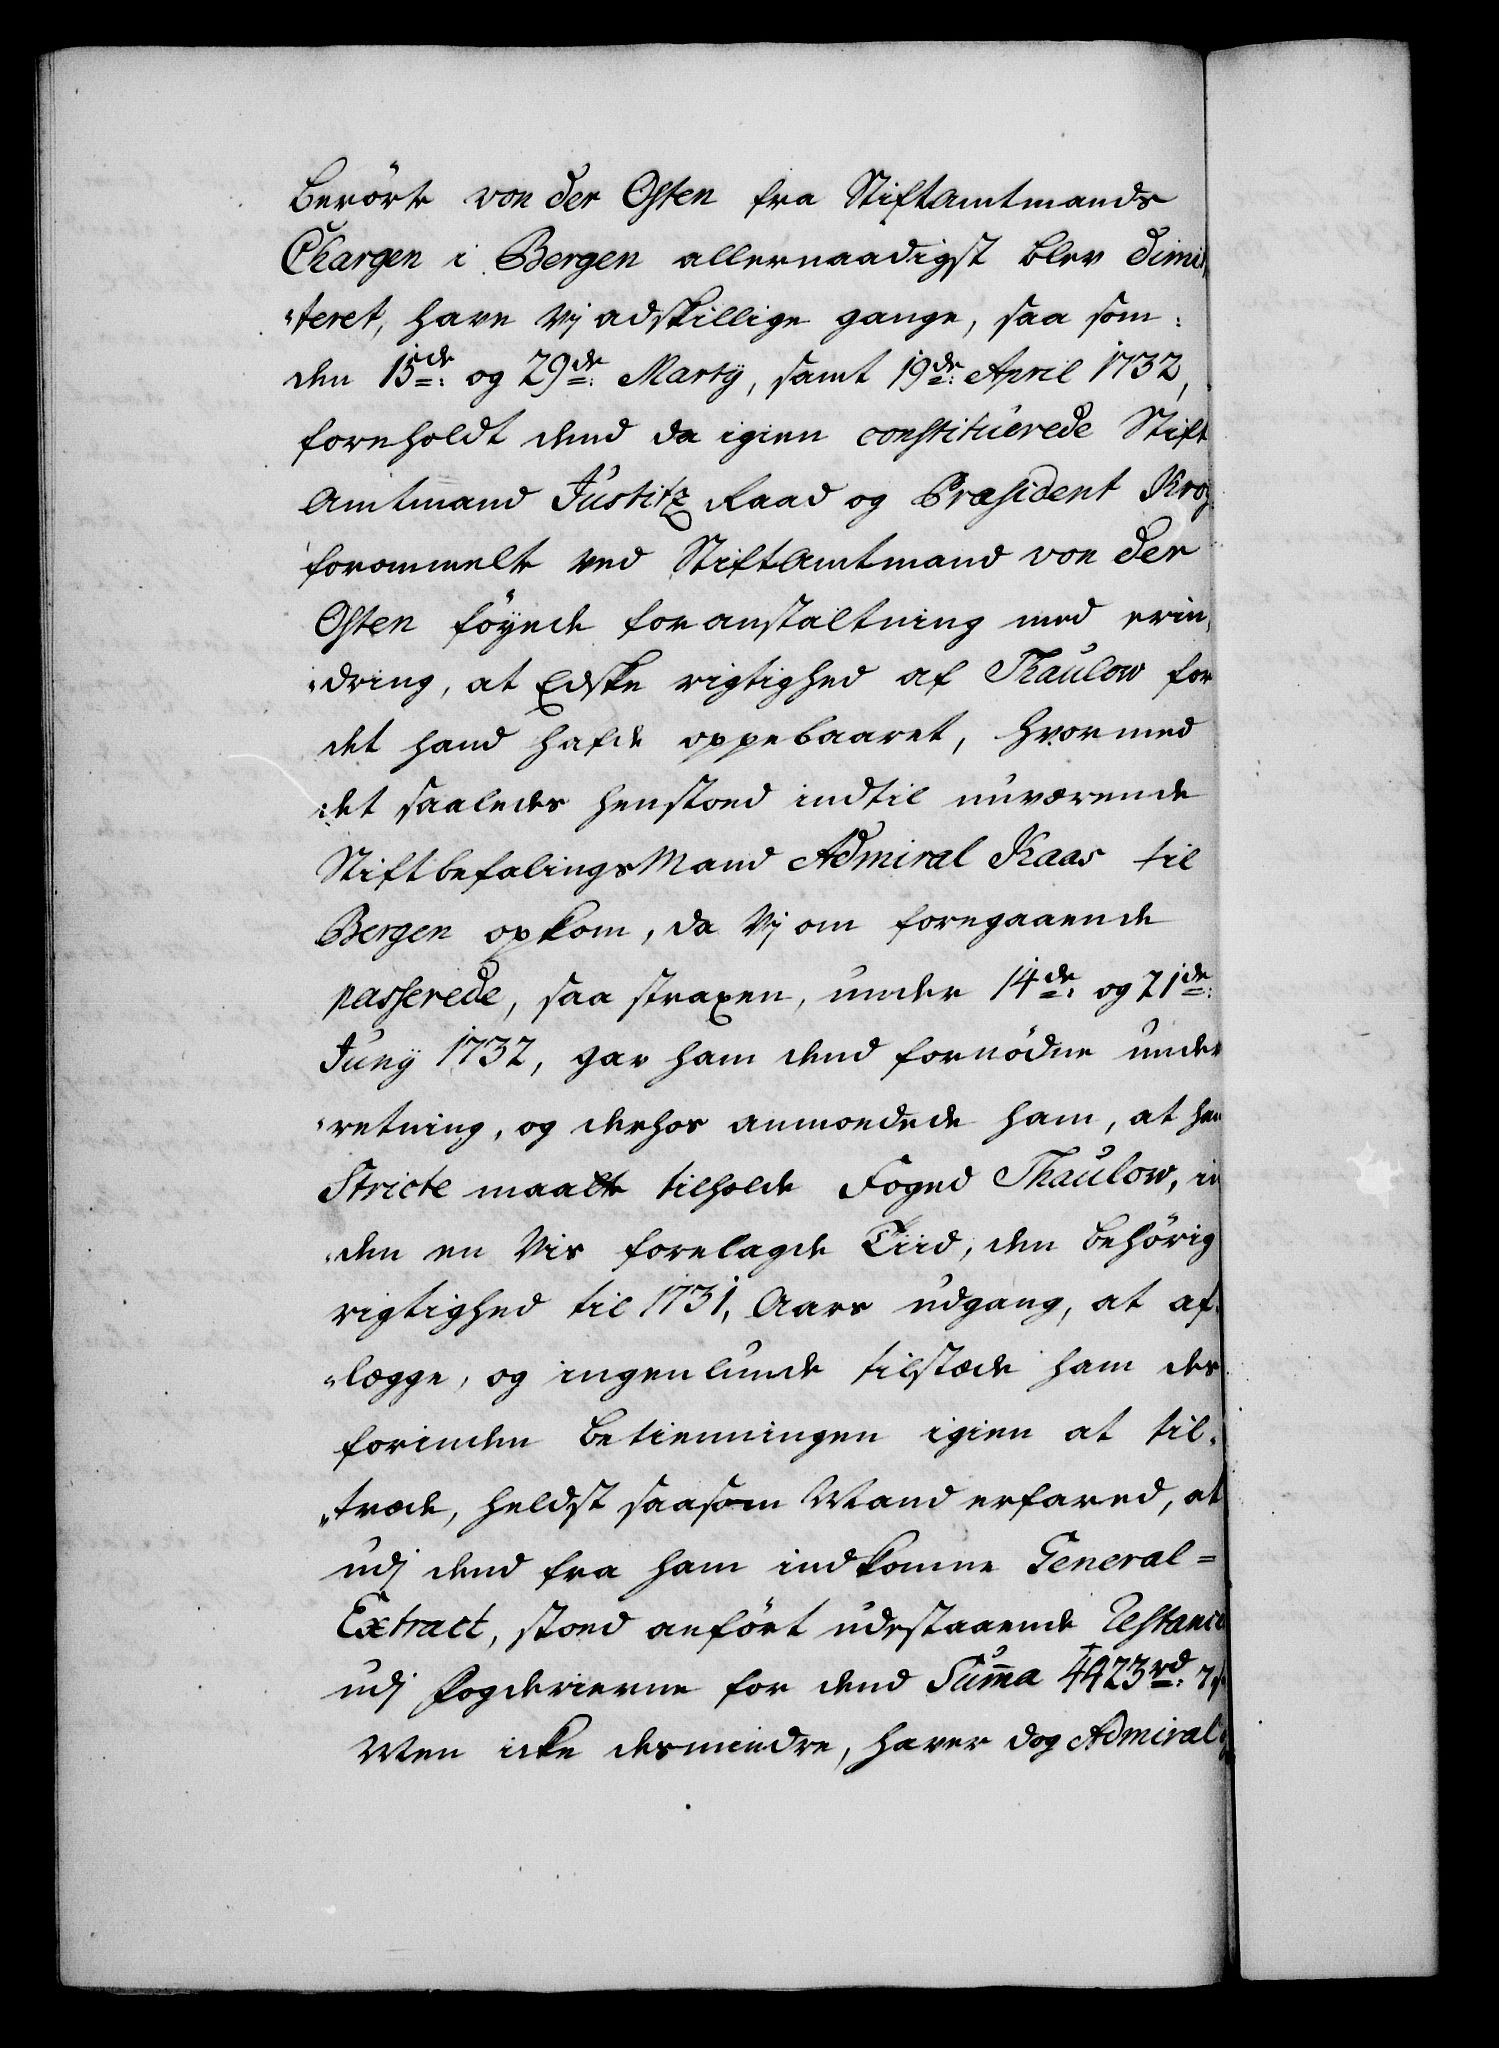 berørte von der Osten fra Stiftamtmands
Chargen i Bergen allernaadigst blev dimit
„teret, have Vj adskillige gange, saa som:
den 15de: og 29de: Martÿ, samt 19de: April 1732,
foreholdt dend da igien constituerede Stift
Amtmand Justitz Raad og Præsident Krog
forommelte ved StiftAmtmand von der
Osten føÿede foranstaltning med erin
„dring, at Edske rigtighed af Thaulow for
det hand hafde oppebaaret, hvormed
det saaledes henstoed indtil nuværende
StiftbefalingsMand Admiral Kaas til
Bergen opkom, da Vj om foregaaende
passerede, saa straxen, under 14de: og 21de:
Junÿ 1732, gav ham dend fornødne under
„retning, og derhos anmoedede ham, at han
Stricte maatte tilholde Foged Thaulow, in
„den en Vis forelagde Tiid, den behørig
rigtighed til 1731, Aars udgang, at af„
„legge, og ingenlunde tilstæde ham der
forinden betienningen igien at til„
„træde, heldst saasom Mand erfared, at
udj dend fra ham indkomne General=
Extract, stoed anført udestaaende Restance
udj Fogderierne for dend Summa 4423rd:
Men icke desmindre, haver dog Admiral